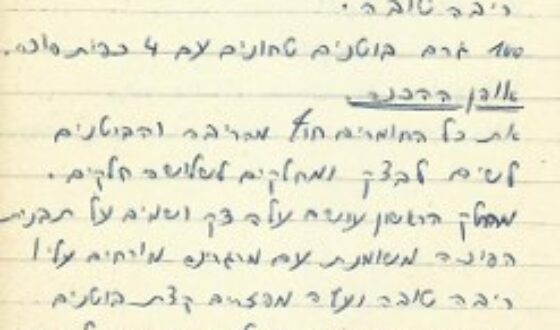 ריבה טובה.
100 גרם בוטנים טחונים עם 4 כפית סוכר.
אופן ההכנה
את כל החומרים חוץ מהריבה והבוטנים
לשים לבצק ומחלקים לשלושה חלקים.
מחלק הראשון עושים עלה דק ושמים על תבנית
הפיצה משומנת עם מרגרינה מורחים עליו
ריבה טובה ועליה מפזרים קצת בוטנים